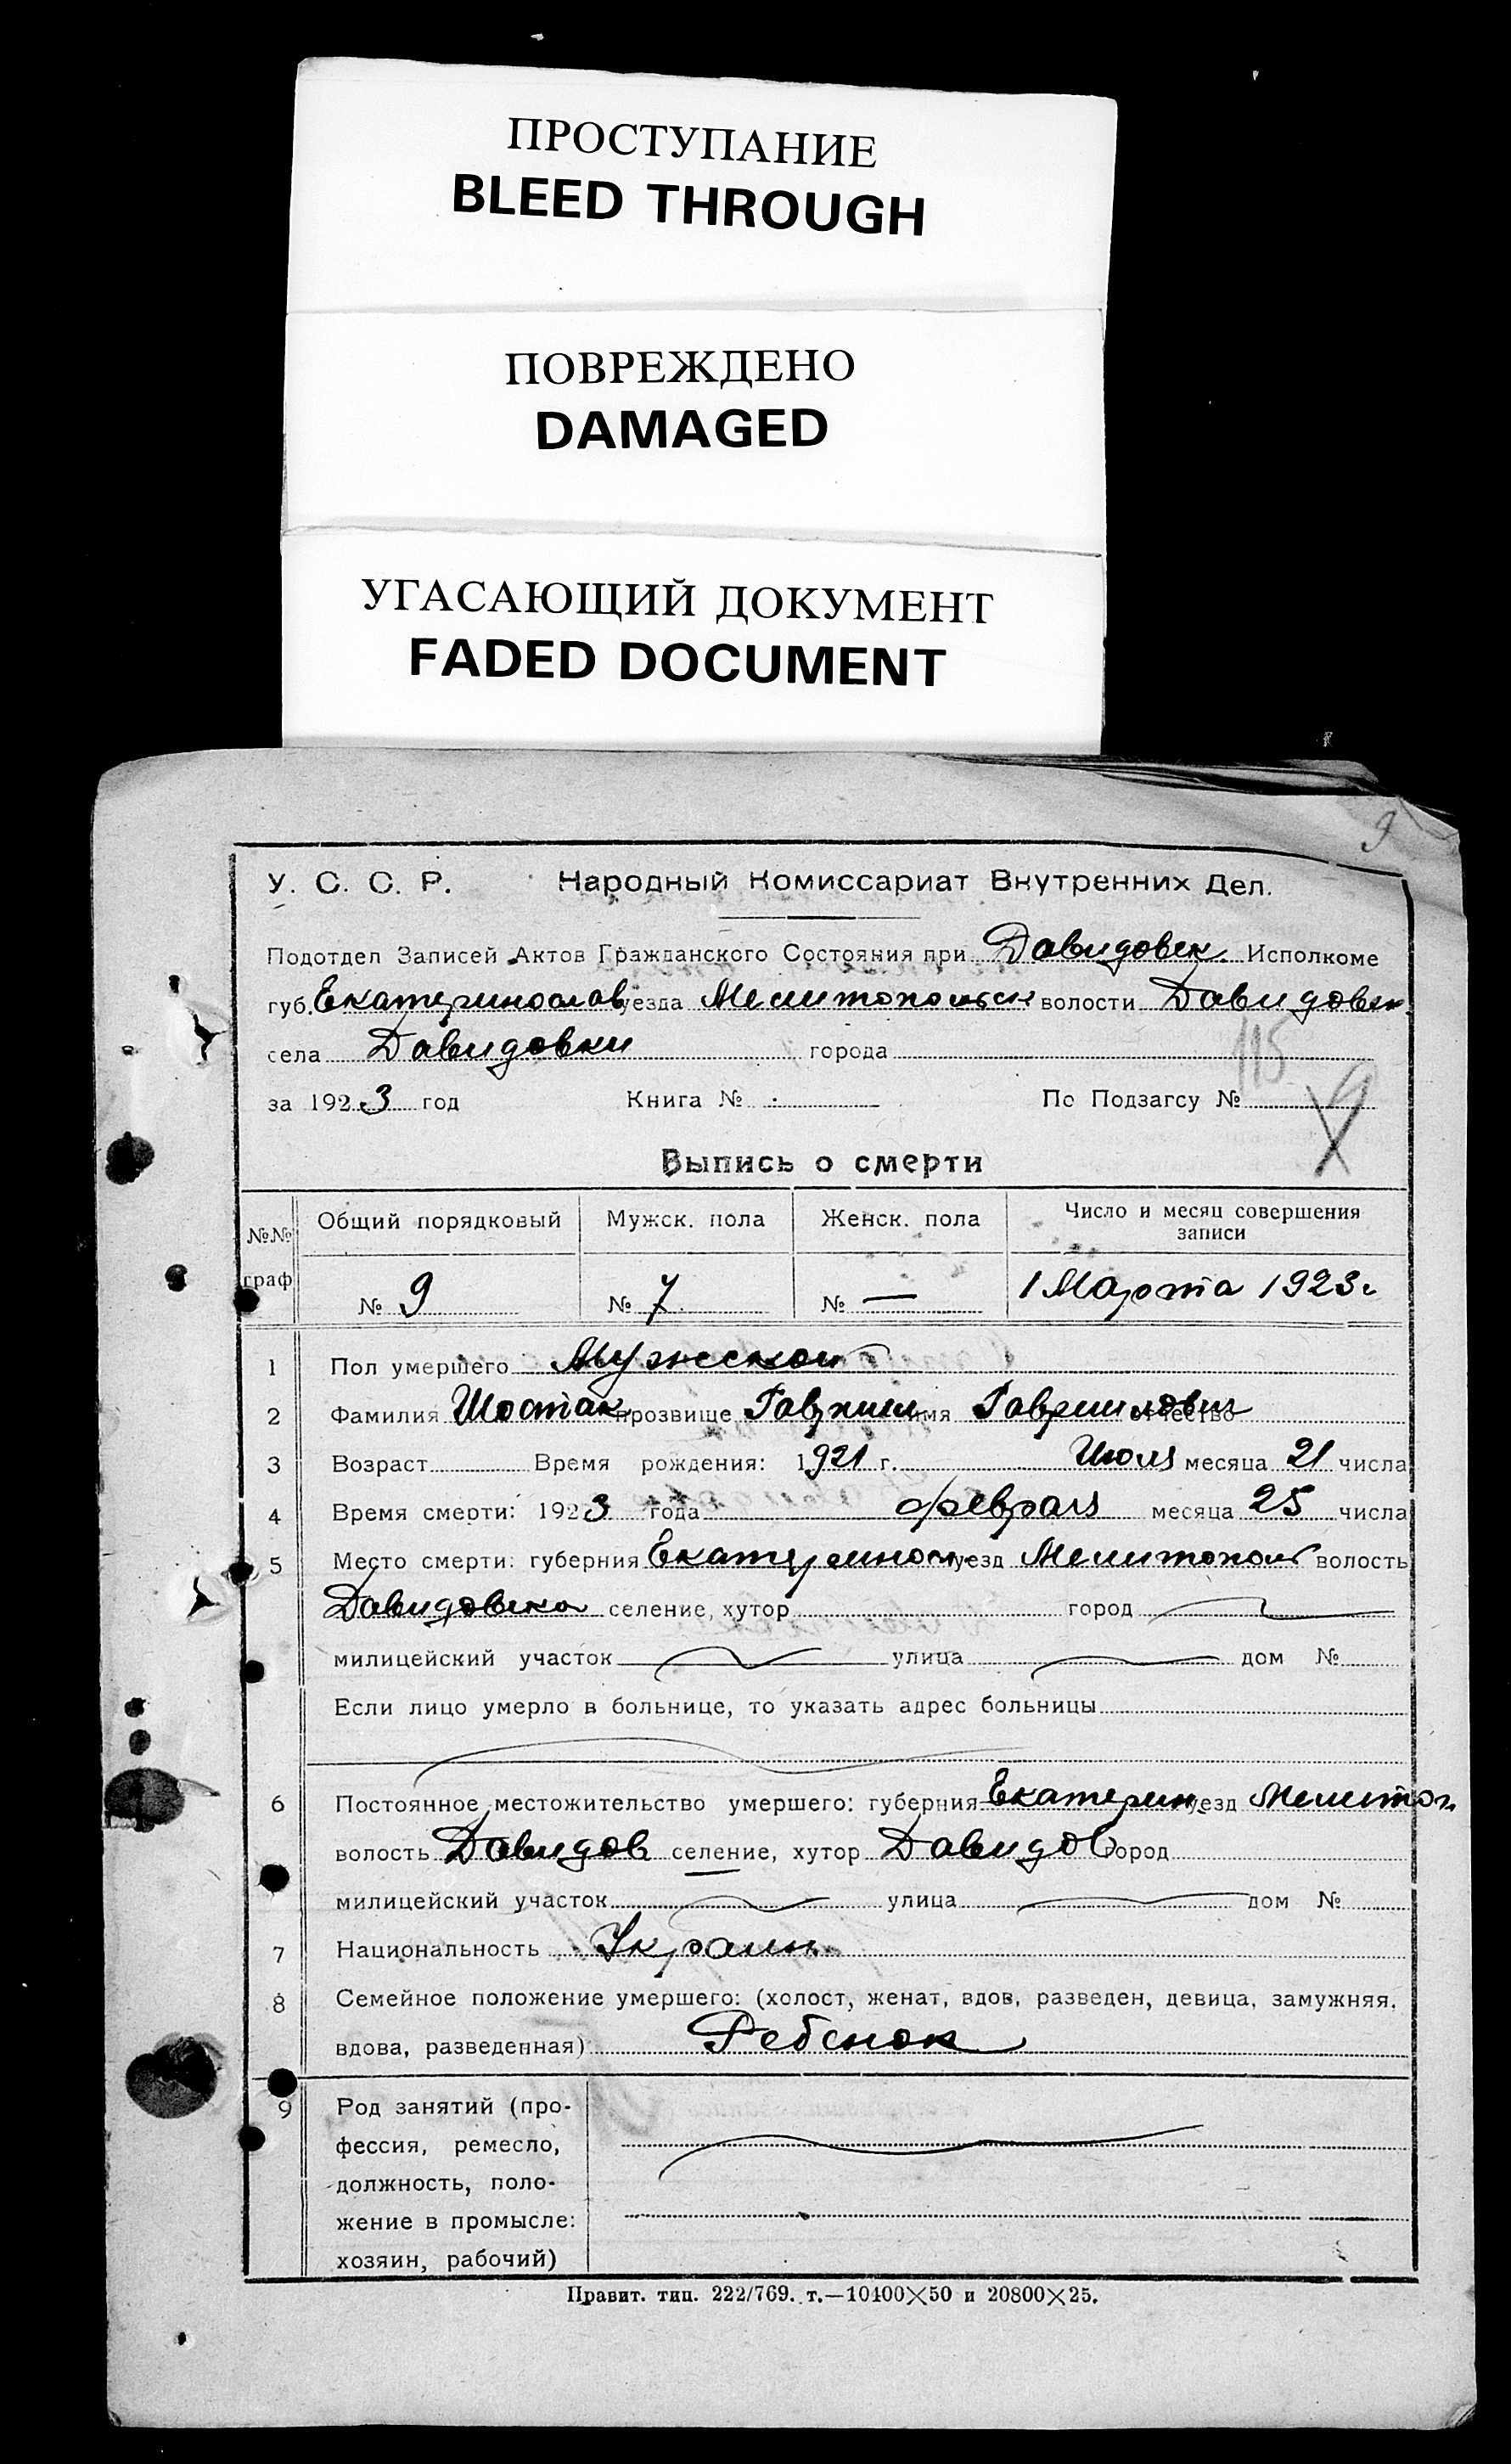 ПРОСТУПАНИЕ
BLEED THROUGH
ПОВРЕЖДЕНО
DAMAGED
УГАСАЮЩИЙ ДОКУМЕНТ
FADED DOCUMENT
9
У. С. С. Р. Народный Комиссариат Внутренних Дел.
Подотдел Записей Актов Гражданского Состояния при Давидовск. Исполкоме
губ. Екатеринослав уезда Мелитопольск волости Давидовск
села Давидовки города
115
за 1923 год Книга № По Подзагсу № 9
Выпись о смерти
№№ граф Общий порядковый Мужск. пола Женск. пола Число и месяц совершения записи
№ 9 № 7 № — 1 Марта 1923 г
1 Пол умершего Мужской
2 Фамилия Шостак прозвище Гавриил имя Гавриилович отчество
3 Возраст Время рождения: 1921 г. Июля месяца 21 числа
4 Время смерти: 1923 года февраля месяца 25 числа
5 Место смерти: губерния Екатериносл. уезд Мелитополь волость
Давидовка селение, хутор город
милицейский участок улица дом №
Если лицо умерло в больнице, то указать адрес больницы
6 Постоянное местожительство умершего: губерния Екатерин уезд Мелитоп
волость Давидов селение, хутор Давидов город
милицейский участок улица дом №
7 Национальность Украин
8 Семейное положение умершего: (холост, женат, вдов, разведен, девица, замужняя,
вдова, разведенная) Ребенок
9 Род занятий (про-
фессия, ремесло,
должность, поло-
жение в промысле:
хозяин, рабочий)
Правит. тип. 222/769. т.—10400×50 и 20800×25.